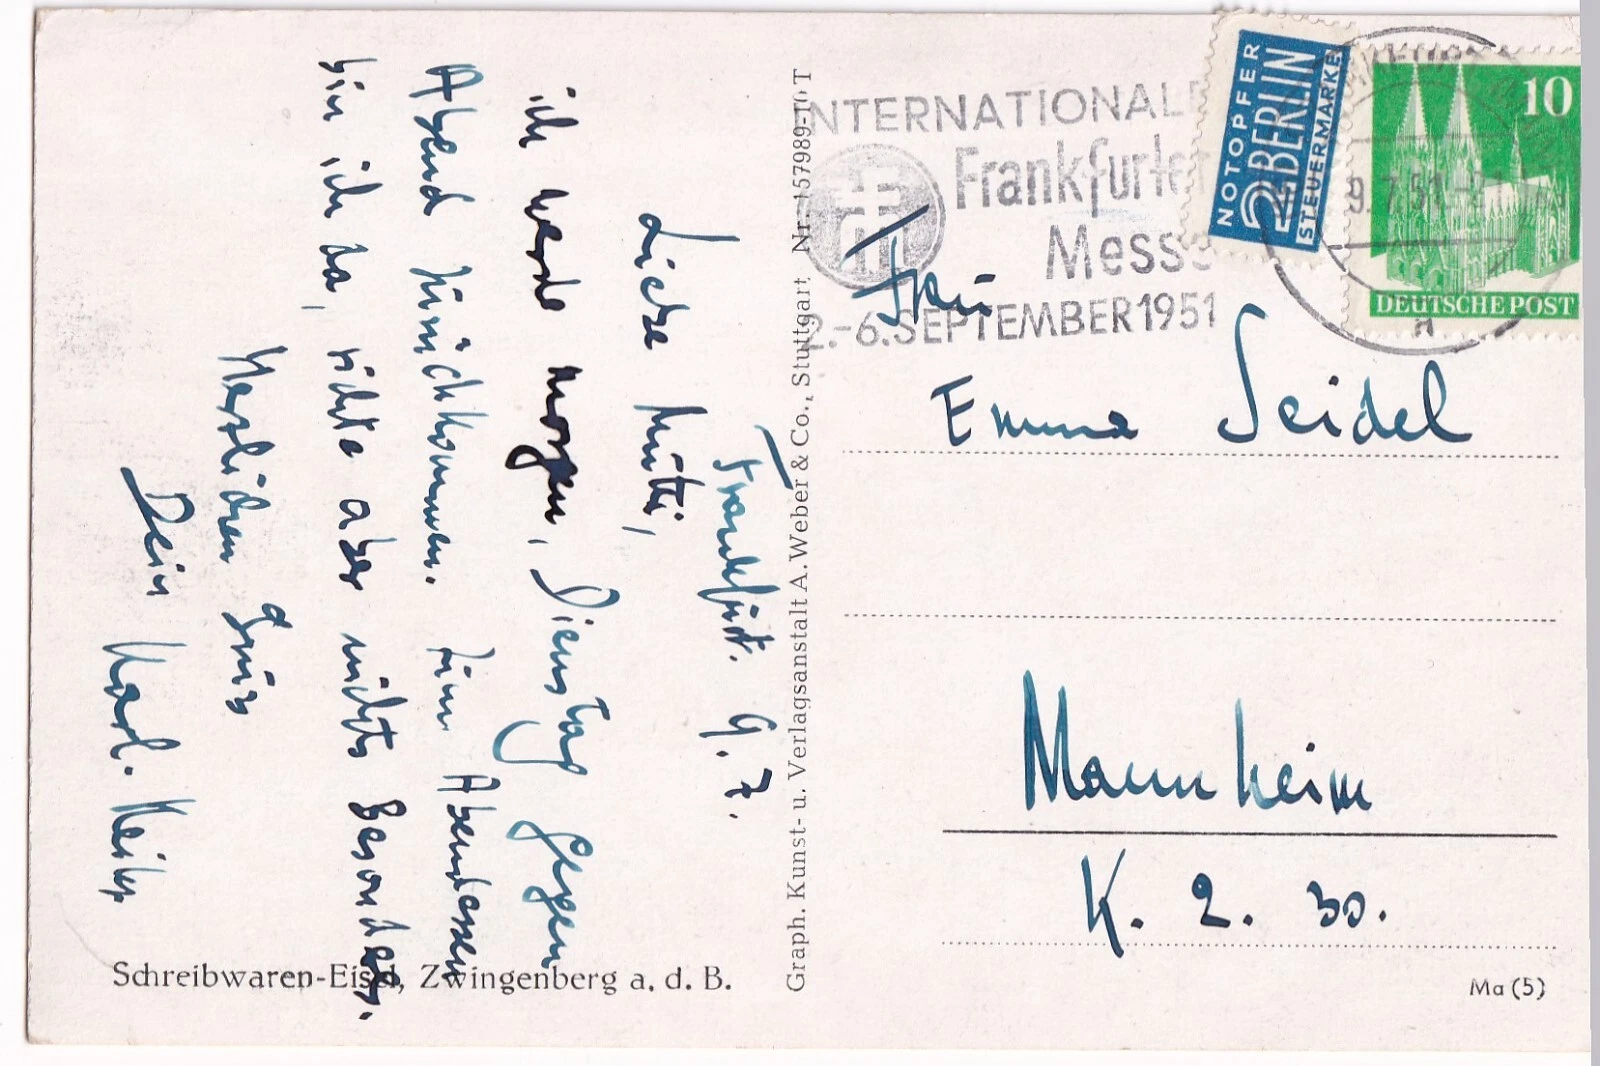 Frankfurt. 9. 7.
Liebe Mutti,
ich werde morgen, Dienstag gegen
Abend zurückkommen. Zum Abendessen
bin ich da, richte aber nichts Besonderes.
Herzlichen Gruss
Dein Karl-
Schreibwaren-Eisel, Zwingenberg a. d. B.
Graph. Kunst- u. Verlagsanstalt A. Weber & Co., Stuttgart Nr. 157989-10 T
INTERNATIONALE
Frankfurter
Messe
2.-6. SEPTEMBER 1951
NOTOPFER
2 BERLIN
STEUERMARKE
10
DEUTSCHE POST
9.7.51
Frau
Emma Seidel
Mannheim
K. 2. 30.
Ma (5)